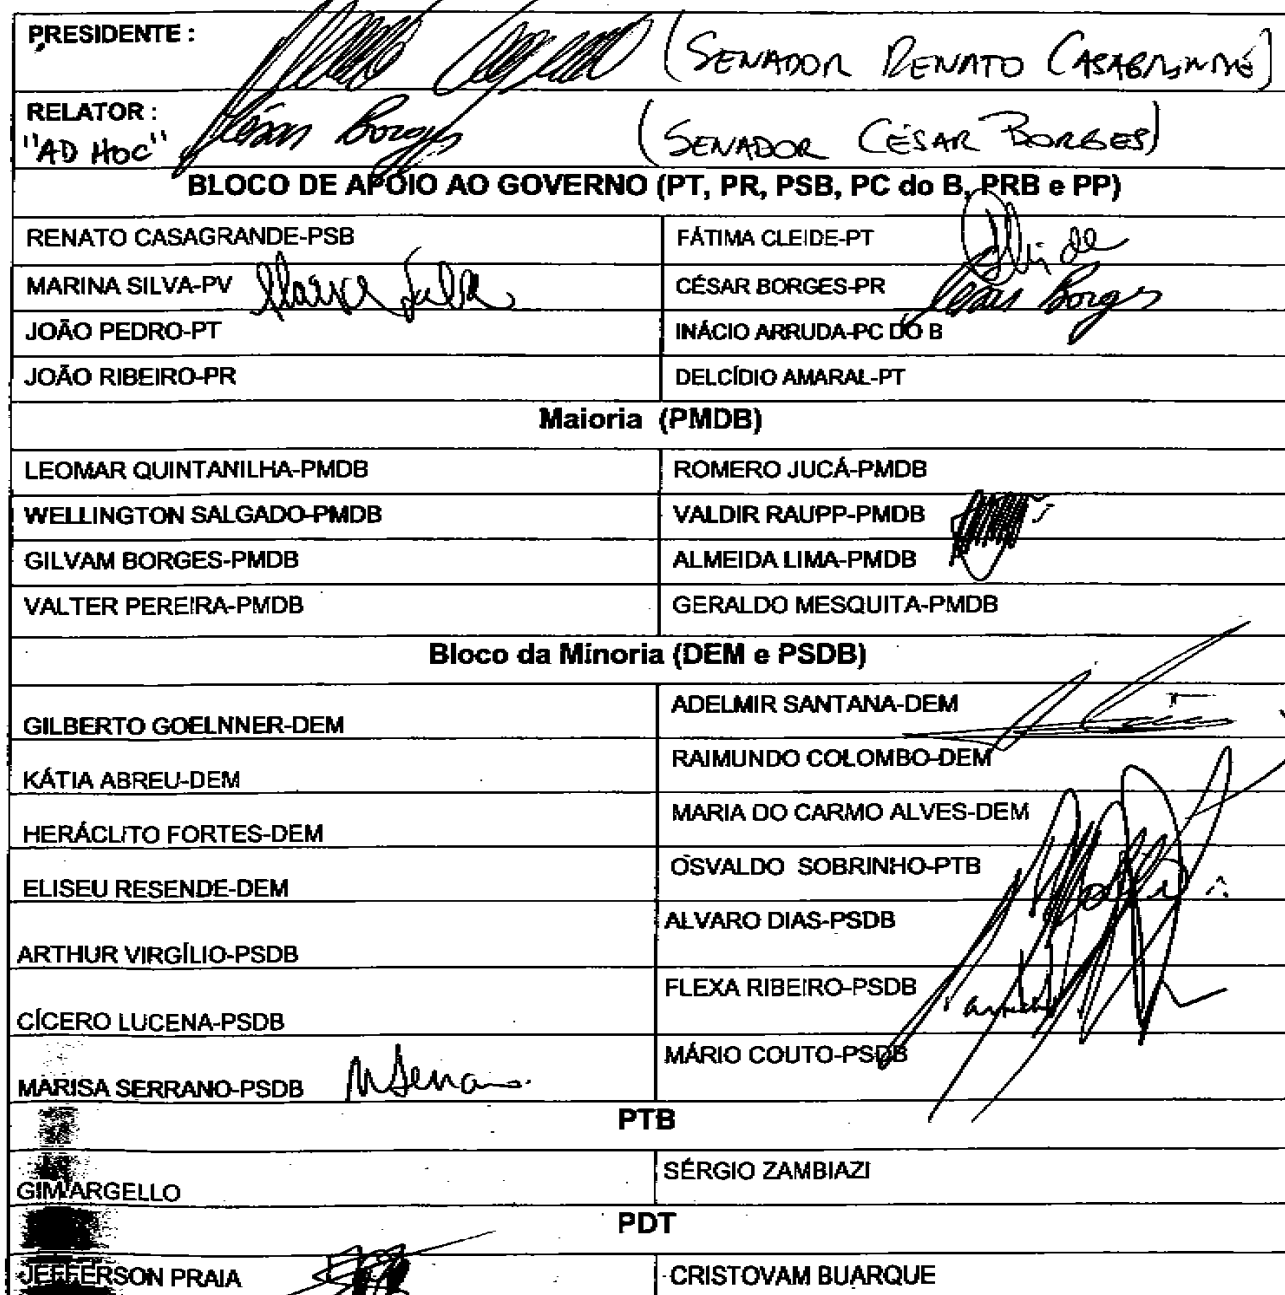 PRESIDENTE : (SENADOR RENATO CASAGRANDE)
RELATOR : César Borges (SENADOR CÉSAR BORGES)
"AD HOC"
BLOCO DE APOIO AO GOVERNO (PT, PR, PSB, PC do B, PRB e PP)
RENATO CASAGRANDE-PSB FÁTIMA CLEIDE-PT
MARINA SILVA-PV Marina Silva CÉSAR BORGES-PR César Borges
JOÃO PEDRO-PT INÁCIO ARRUDA-PC DO B
JOÃO RIBEIRO-PR DELCÍDIO AMARAL-PT
Maioria (PMDB)
LEOMAR QUINTANILHA-PMDB ROMERO JUCÁ-PMDB
WELLINGTON SALGADO-PMDB VALDIR RAUPP-PMDB
GILVAM BORGES-PMDB ALMEIDA LIMA-PMDB
VALTER PEREIRA-PMDB GERALDO MESQUITA-PMDB
Bloco da Minoria (DEM e PSDB)
GILBERTO GOELNNER-DEM ADELMIR SANTANA-DEM
KÁTIA ABREU-DEM RAIMUNDO COLOMBO-DEM
HERÁCLITO FORTES-DEM MARIA DO CARMO ALVES-DEM
ELISEU RESENDE-DEM OSVALDO SOBRINHO-PTB
ARTHUR VIRGÍLIO-PSDB ALVARO DIAS-PSDB
CÍCERO LUCENA-PSDB FLEXA RIBEIRO-PSDB
MARISA SERRANO-PSDB MÁRIO COUTO-PSDB
PTB
GIM ARGELLO SÉRGIO ZAMBIAZI
PDT
JEFFERSON PRAIA CRISTOVAM BUARQUE